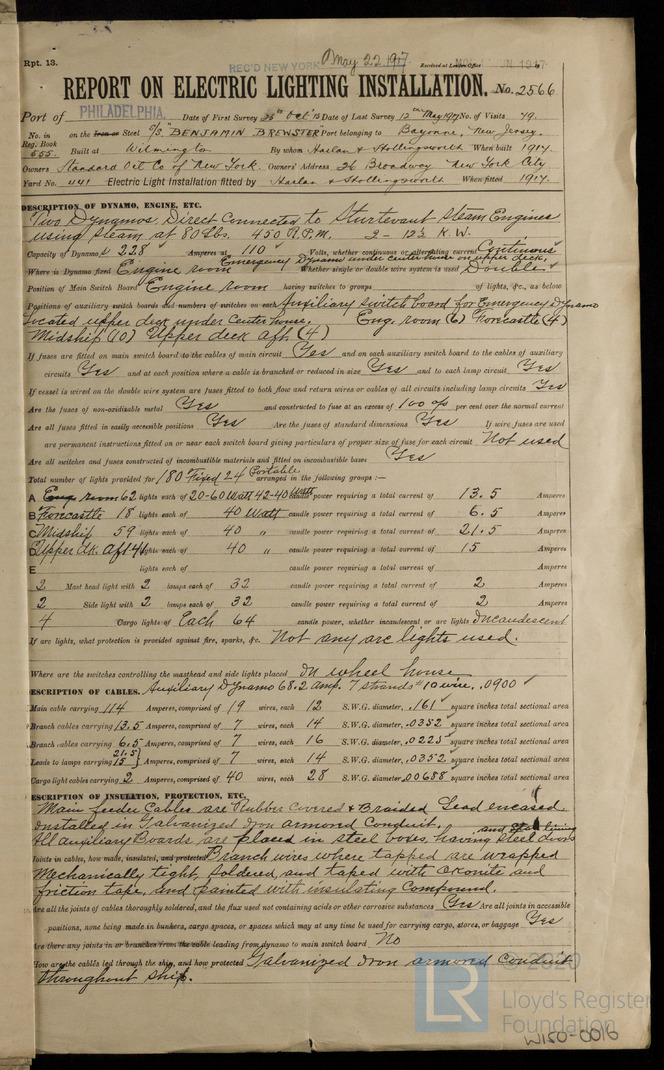 Rpt. 13.
REC'D NEW YORK May 22 1917 Received at London Office
REPORT ON ELECTRIC LIGHTING INSTALLATION. No. 2566
Port of PHILADELPHIA. Date of First Survey 25th Oct 15 Date of Last Survey 12th May 1917 No. of Visits 49.
No. in Reg. Book 655. on the Iron or Steel S/S. "BENJAMIN BREWSTER Port belonging to Bayonne, New Jersey.
Built at Wilmington By whom Harlan & Hollingsworth When built 1917.
Owners Standard Oil Co of New York. Owners' Address 26 Broadway New York City
Yard No. 441 Electric Light Installation fitted by Harlan & Hollingsworth When fitted 1917.
DESCRIPTION OF DYNAMO, ENGINE, ETC.
Two Dynamos, Direct Connected to Sturtevant Steam Engines
using steam at 80 Lbs. 450 R.P.M. 2 - 12½ K.W.
Capacity of Dynamos 228 Amperes at 110 Volts, whether continuous or alternating current Continuous
Where is Dynamo fixed Engine room Emergency Dynamo under center house on upper deck, Whether single or double wire system is used Double
Position of Main Switch Board Engine room having switches to groups of lights, &c., as below
Positions of auxiliary switch boards and numbers of switches on each Auxiliary switch board for Emergency Dynamo
located upper deck under center house, Eng. room (6) Forecastle (4)
Midship (10) Upper deck aft (4)
If fuses are fitted on main switch board to the cables of main circuit Yes and on each auxiliary switch board to the cables of auxiliary
circuits Yes and at each position where a cable is branched or reduced in size Yes and to each lamp circuit Yes
If vessel is wired on the double wire system are fuses fitted to both flow and return wires or cables of all circuits including lamp circuits Yes
Are the fuses of non-oxidizable metal Yes and constructed to fuse at an excess of 100 o/o per cent over the normal current
Are all fuses fitted in easily accessible positions Yes Are the fuses of standard dimensions Yes If wire fuses are used
are permanent instructions fitted on or near each switch board giving particulars of proper size of fuse for each circuit Not used
Are all switches and fuses constructed of incombustible materials and fitted on incombustible bases Yes
Total number of lights provided for 180 Fixed 24 Portable arranged in the following groups :—
A Eng. room 62 lights each of 20-60 Watt 42-40 Watt power requiring a total current of 13.5 Amperes
B Forecastle 18 lights each of 40 Watt candle power requiring a total current of 6.5 Amperes
C Midship 59 lights each of 40 " candle power requiring a total current of 21.5 Amperes
D Upper dk. Aft 41 lights each of 40 " candle power requiring a total current of 15 Amperes
E lights each of candle power requiring a total current of Amperes
2 Mast head light with 2 lamps each of 32 candle power requiring a total current of 2 Amperes
2 Side light with 2 lamps each of 32 candle power requiring a total current of 2 Amperes
4 Cargo lights of Each 64 candle power, whether incandescent or arc lights Incandescent
If arc lights, what protection is provided against fire, sparks, &c. Not any arc lights used.
Where are the switches controlling the masthead and side lights placed In wheel house
DESCRIPTION OF CABLES. Auxiliary Dynamo 68.2 Amp. 7 strands #10 wire. .0900
Main cable carrying 114 Amperes, comprised of 19 wires, each 12 S.W.G. diameter, .161 square inches total sectional area
Branch cables carrying 13.5 Amperes, comprised of 7 wires, each 14 S.W.G. diameter, .0352 square inches total sectional area
Branch cables carrying 6.5 Amperes, comprised of 7 wires, each 16 S.W.G. diameter, .0225 square inches total sectional area
Leads to lamps carrying 21.5 15 Amperes, comprised of 7 wires, each 14 S.W.G. diameter, .0352 square inches total sectional area
Cargo light cables carrying 2 Amperes, comprised of 40 wires, each 28 S.W.G. diameter, .00688 square inches total sectional area
DESCRIPTION OF INSULATION, PROTECTION, ETC.
Main feeder Cables are Rubber Covered & Braided Lead encased.
Installed in Galvanized Iron armored Conduit.
All auxiliary Boards are placed in steel boxes, having steel doors and lining
Joints in cables, how made, insulated, and protected Branch wires where tapped are wrapped
Mechanically tight, soldered, and taped with okonite and
friction tape, and painted with insulating compound.
Are all the joints of cables thoroughly soldered, and the flux used not containing acids or other corrosive substances Yes Are all joints in accessible
positions, none being made in bunkers, cargo spaces, or spaces which may at any time be used for carrying cargo, stores, or baggage Yes
Are there any joints in or branches from the cable leading from dynamo to main switch board No
How are the cables led through the ship, and how protected Galvanized Iron armored Conduit
throughout ship.
© 2020
LR Lloyd's Register
Foundation
W150-0016